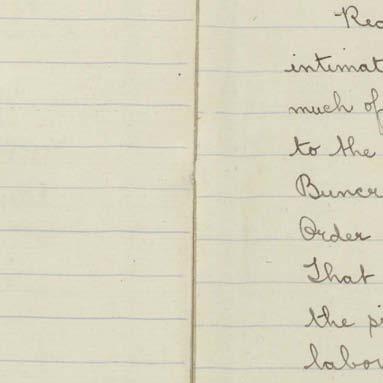 Rec
intimat
much of
to the
Buncr
Order
That
the pi
labor